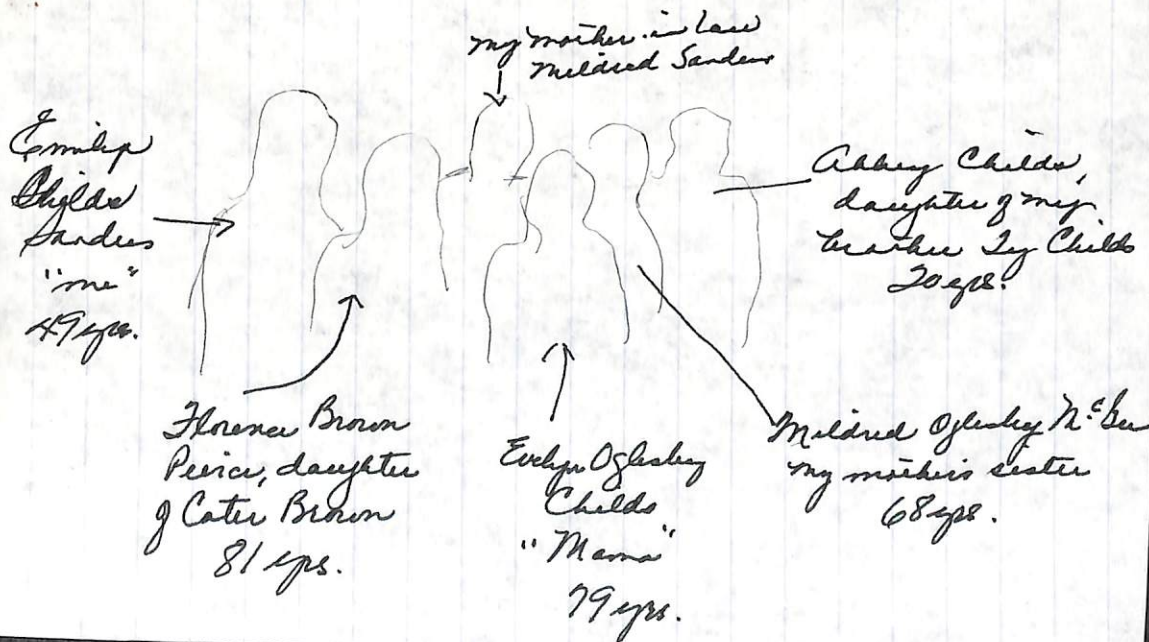 my mother-in-law
Mildred Sanders
Emily
Childs
Sanders
"me"
49 yrs.
Abbey Childs,
daughter of my
brother Ty Childs
20 yrs.
Florence Brown
Peirce, daughter
of Cater Brown
81 yrs.
Evelyn Oglesby
Childs
"Mama"
79 yrs.
Mildred Oglesby
my mother's sister
68 yrs.